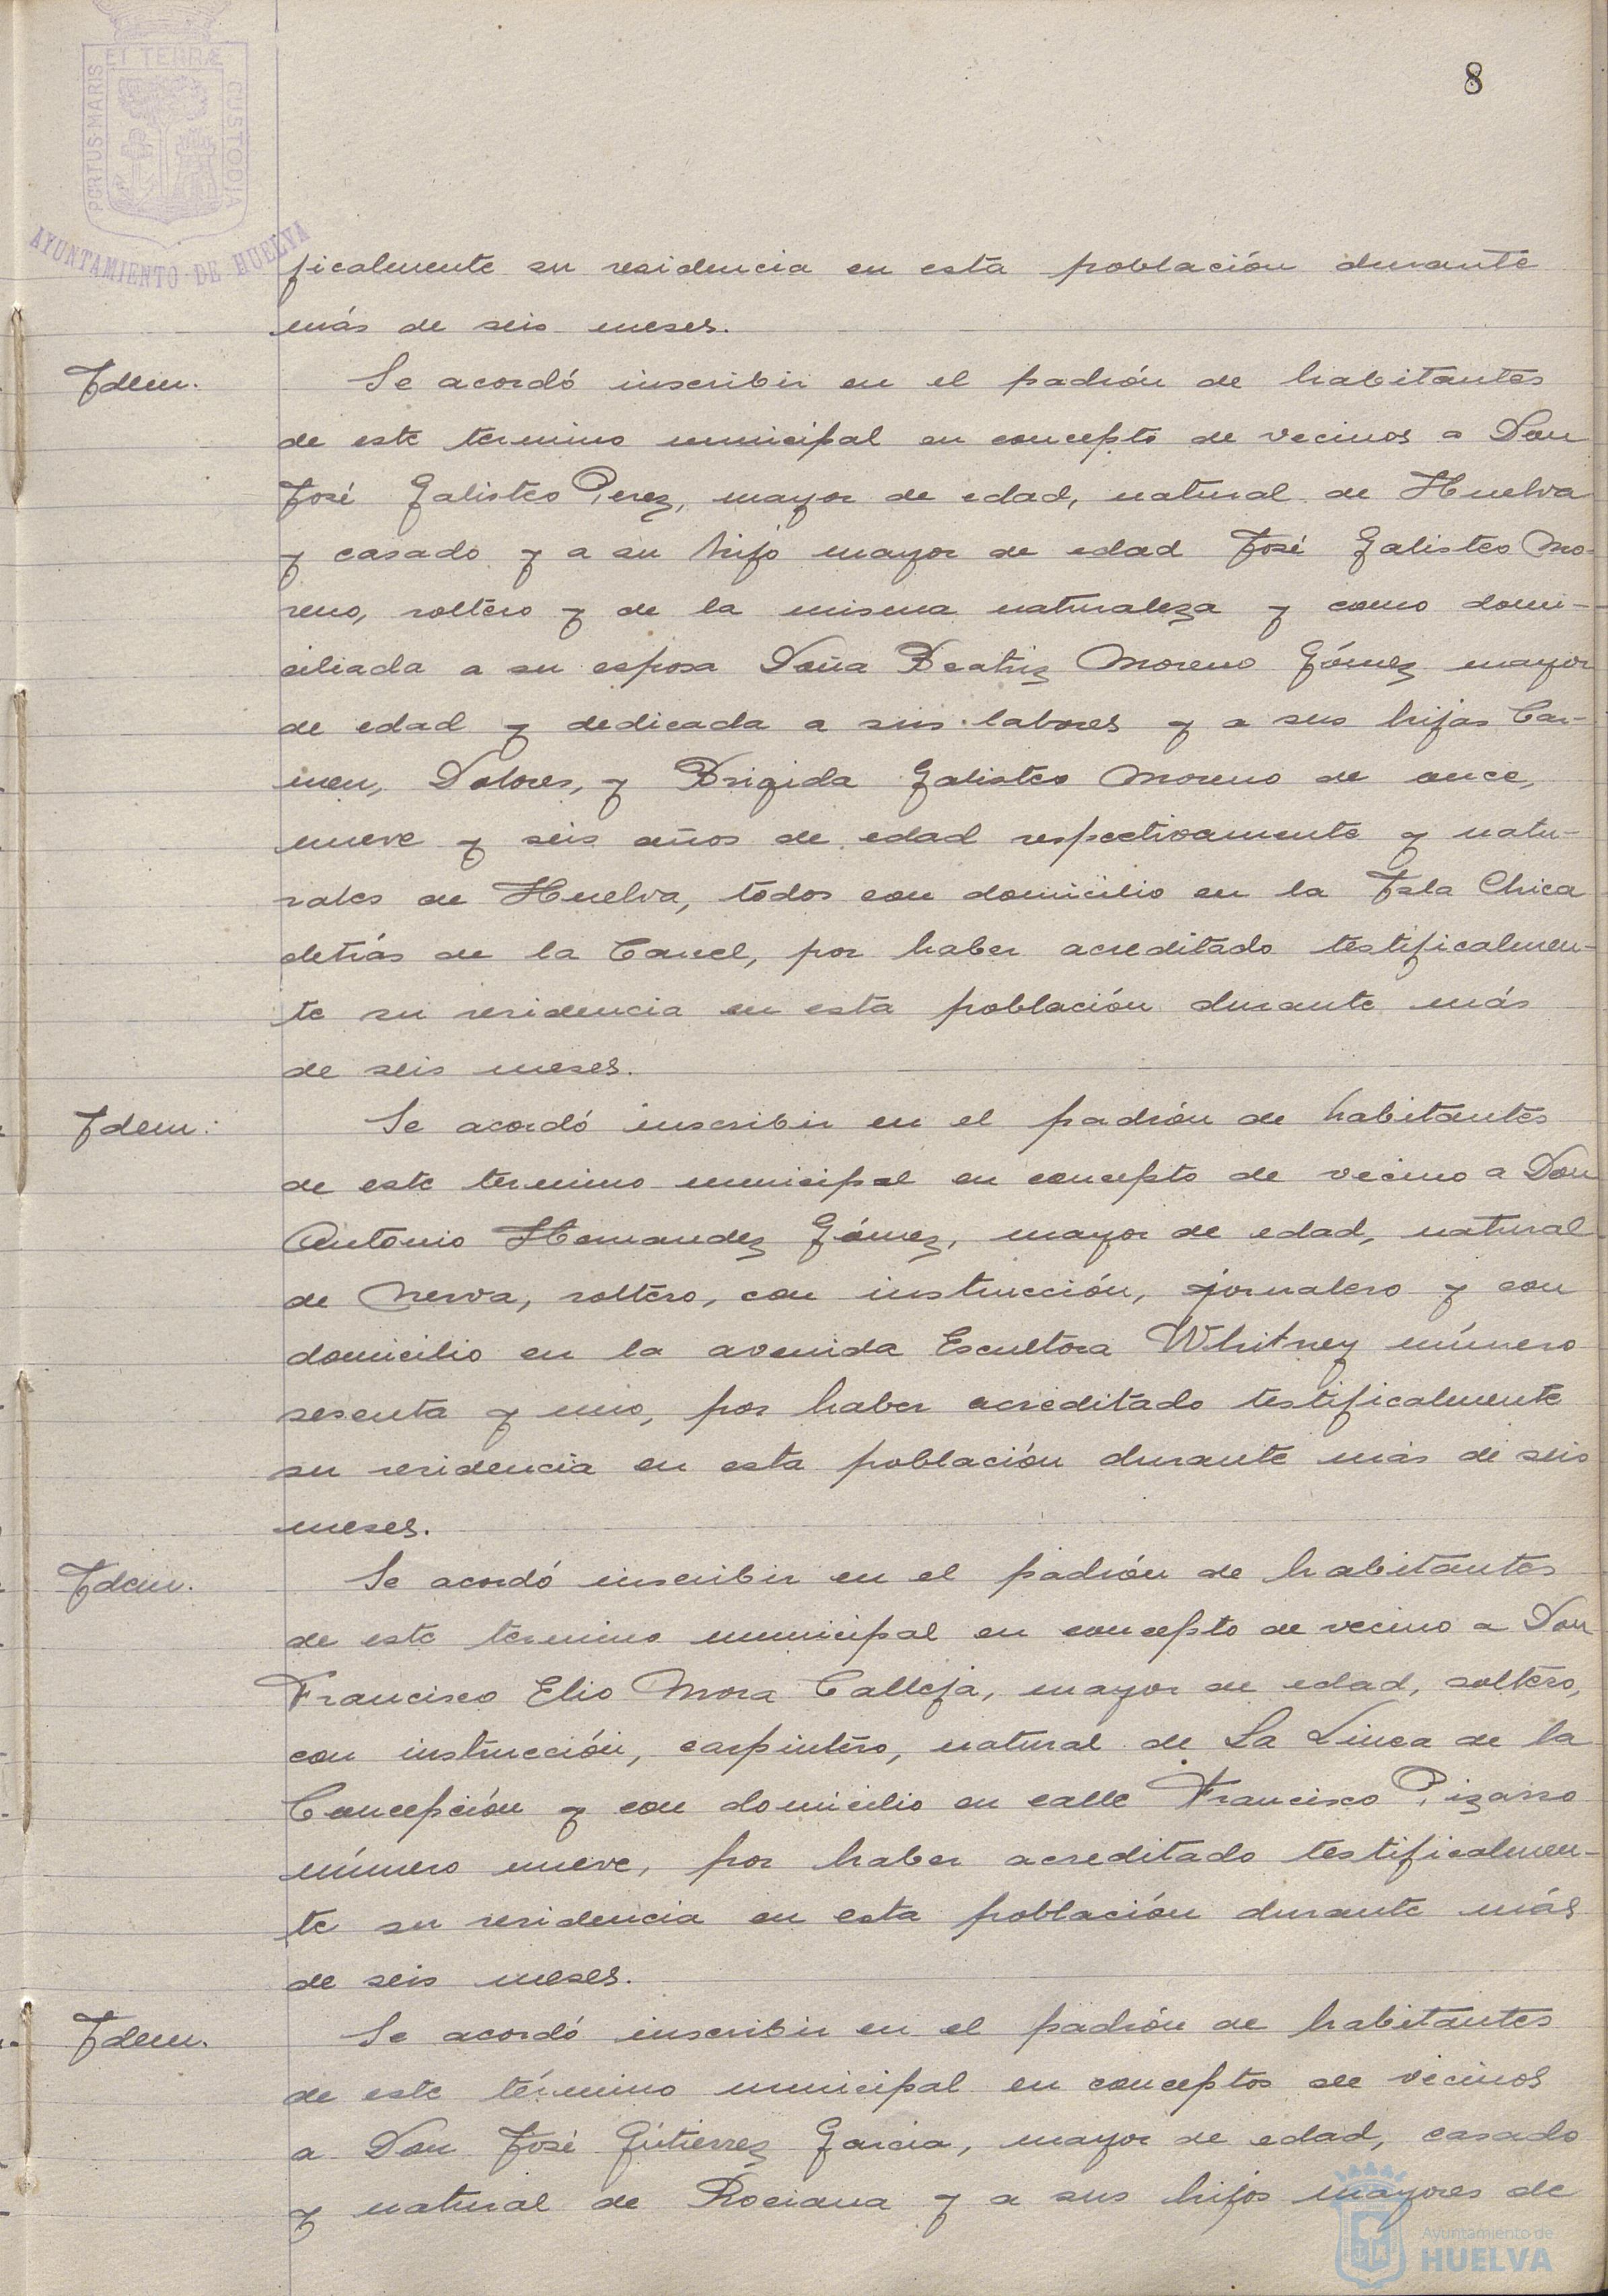 8
PORTUS MARIS ET TERRÆ CUSTODIA
AYUNTAMIENTO DE HUELVA
ficalmente su residencia en esta población durante
más de seis meses.
Idem. Se acordó inscribir en el padrón de habitantes
de este termino municipal en concepto de vecinos a Don
José Galisteo Perez, mayor de edad, natural de Huelva
y casado y a su hijo mayor de edad José Galisteo Mo-
reno, soltero y de la misma naturaleza y como domi-
ciliada a su esposa Doña Beatriz Moreno Gómez mayor
de edad y dedicada a sus labores y a sus hijas Car-
men, Dolores, y Brigida Galisteo Moreno de once,
nueve y seis años de edad respectivamente y natu-
rales de Huelva, todos con domicilio en la Isla Chica
detrás de la Carcel, por haber acreditado testificalmen-
te su residencia en esta población durante más
de seis meses.
Idem. Se acordó inscribir en el padrón de habitantes
de este termino municipal en concepto de vecino a Don
Antonio Hernandez Gómez, mayor de edad, natural
de Nerva, soltero, con instrucción, jornalero y con
domicilio en la avenida Escultora Whitney número
sesenta y uno, por haber acreditado testificalmente
su residencia en esta población durante más de seis
meses.
Idem. Se acordó inscribir en el padrón de habitantes
de este termino municipal en concepto de vecino a Don
Francisco Elio Mora Calleja, mayor de edad, soltero,
con instrucción, carpintero, natural de La Linea de la
Concepción y con domicilio en calle Francisco Pizarro
número nueve, por haber acreditado testificalmen-
te su residencia en esta población durante más
de seis meses.
Idem. Se acordó inscribir en el padrón de habitantes
de este término municipal en conceptos de vecinos
a Don José Gutierrez Garcia, mayor de edad, casado
y natural de Rociana y a sus hijos mayores de
Ayuntamiento de
HUELVA